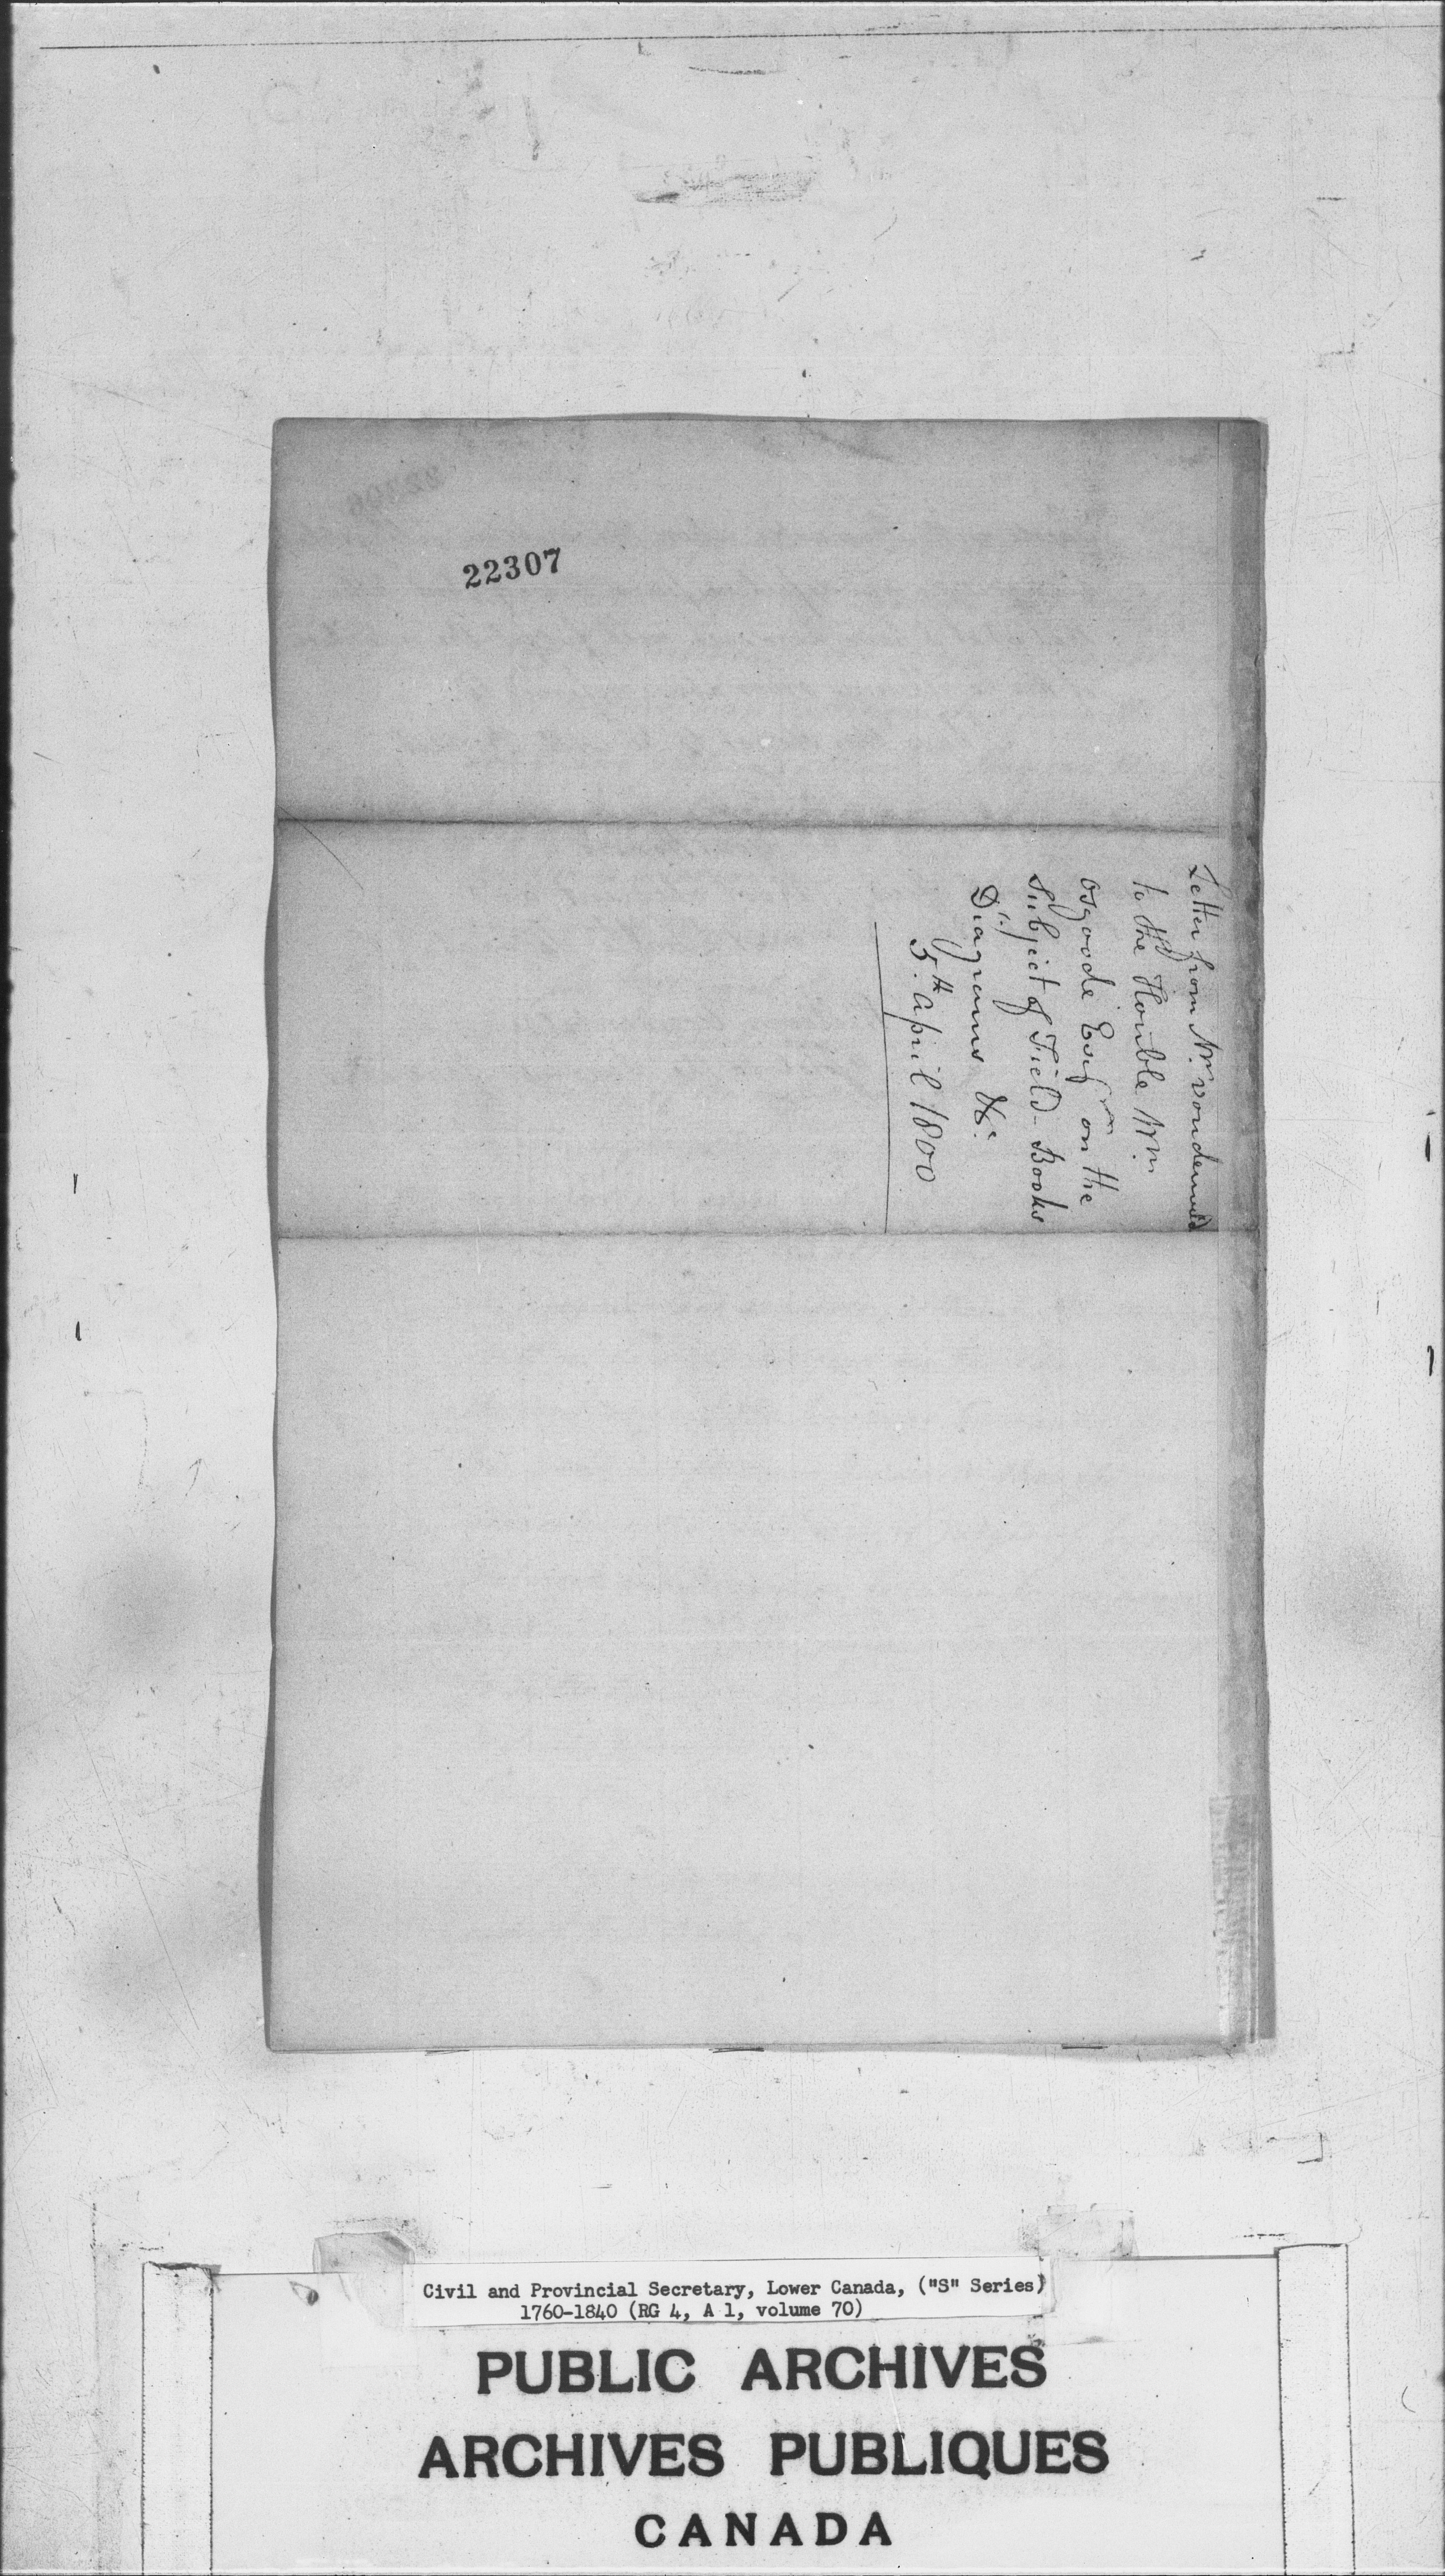 22307
Letter from Wm. Vondenveld
to the Honble Wm.
Osgoode Esqr on the
Subject of Field-Books
Diagrams &c.
5th. April 1800
Civil and Provincial Secretary, Lower Canada, ("S" Series)
1760-1840 (RG 4, A 1, volume 70)
PUBLIC ARCHIVES
ARCHIVES PUBLIQUES
CANADA